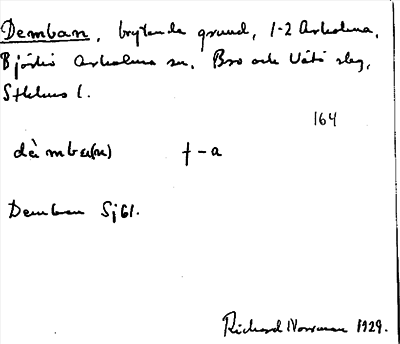 Demban, brytande grund, 1-2 Arholma,
Björkö Arholma sn, Bro och Vätö slg,
Sthlms l.
164
dämba(n) f -a
Demban Sj61.
Richard Norrman 1929.